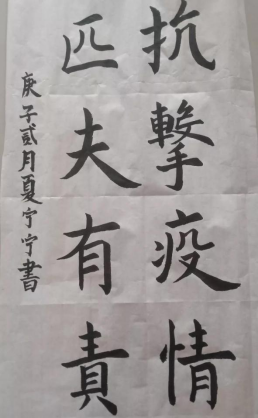 抗擊疫情
匹夫有責
庚子貳月夏宁宁書